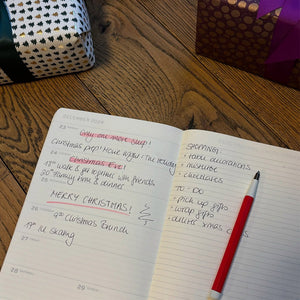 DECEMBER 2024
23
Only one more sleep!
Christmas prep! Home Alone + The Holiday
24
Christmas Eve!
18:00 work & pre together with friends
20:00 Family time & dinner
25
MERRY CHRISTMAS!
26
9:00 Christmas Brunch
27
11:00 ice skating
28
29
SHOPPING:
+ table decorations
+ mistletoe
+ chocolates
TO-DO
- pick up gifts
- wrap gifts
- deliver xmas cards